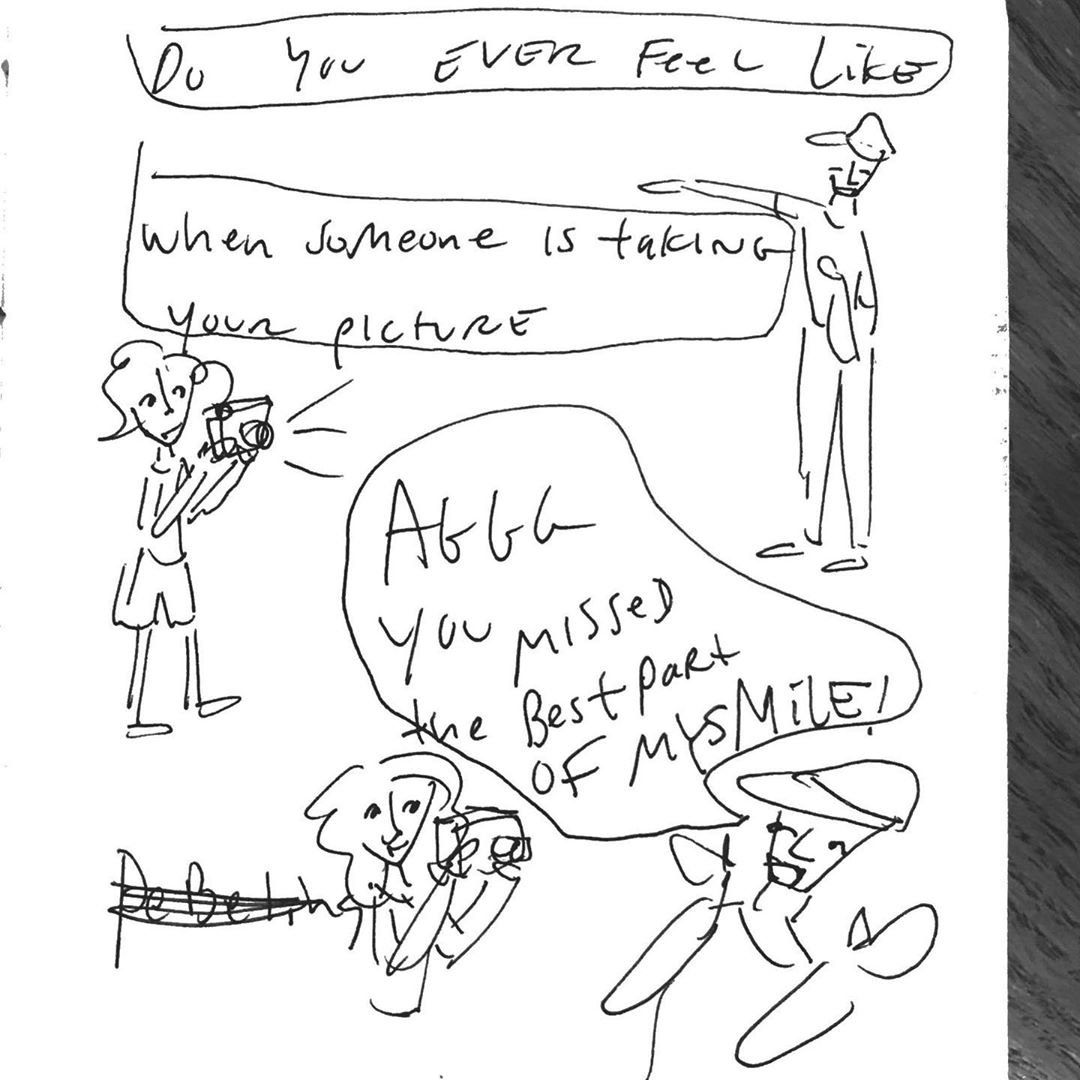 Do You EVER FeeL LikE
when someone is takiNG
your picturE
AGGG
you missed
the Best part
OF MY SMiLE!